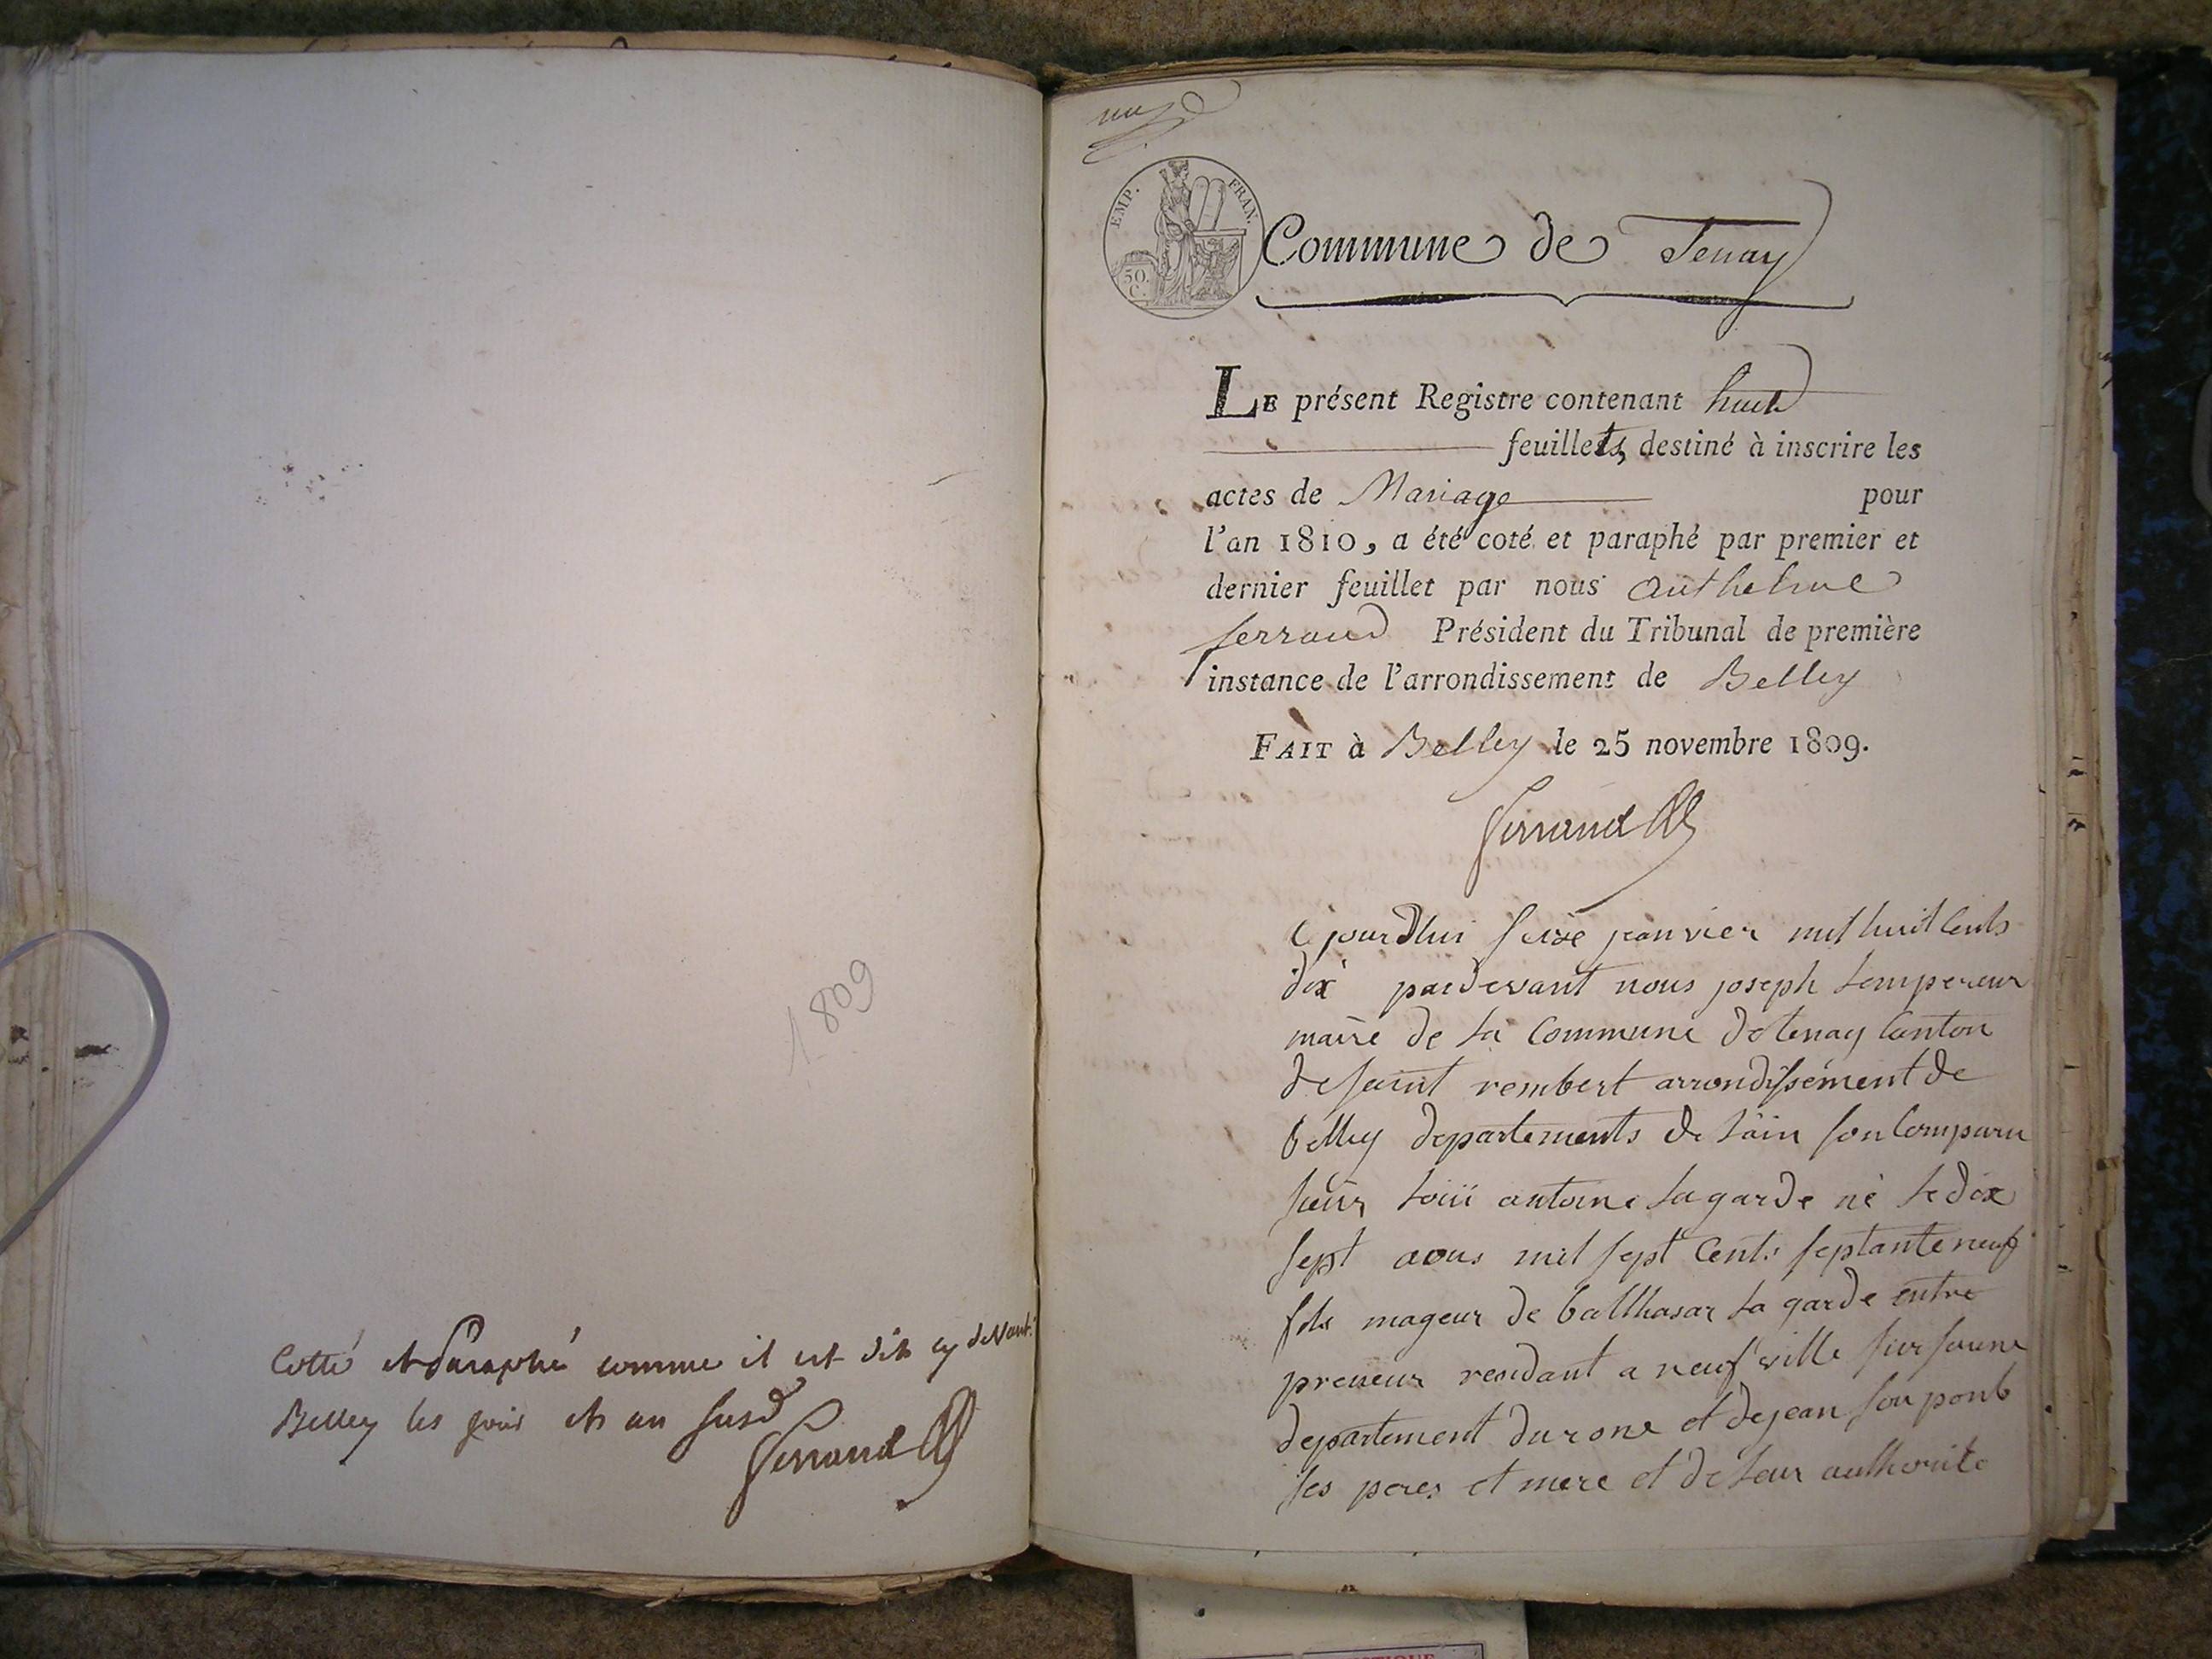 1809
Cotté et Paraphé comme il est dit cy devant.
Belley les jour et an susd
Ferrand
EMP. FRAN.
50.
C.
Commune de Tenay
LE présent Registre contenant huit
feuillets, destiné à inscrire les
actes de Mariage pour
l'an 1810, a été coté et paraphé par premier et
dernier feuillet par nous Anthelme
ferrand Président du Tribunal de première
instance de l'arrondissement de Belley
FAIT à Belley le 25 novembre 1809.
Ferrand
Cejourdhui seize janvier mil huit Cents
dix pardevant nous joseph Lempereur
maire de la Commune de tenay Canton
de saint rembert arrondissement de
belley departements de lain son Comparu
sieur antoine lagarde né le dix
sept aous mil sept Cents septante neuf
fils mageur de balthasar la garde entre
preneur residant a neufville sur saune
departement du rone et de jean
ses peres et mere et de leur authorite